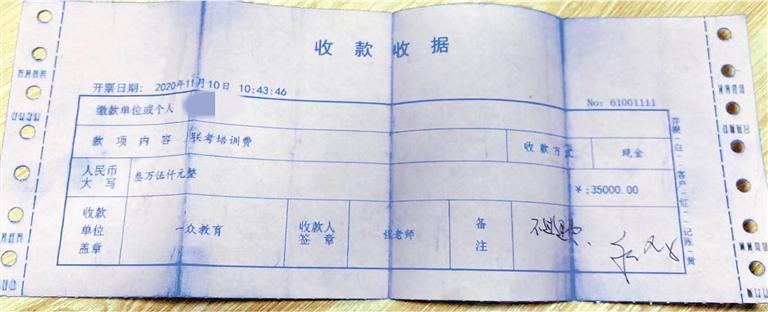 收款收据
开票日期: 2020年11月10日 10:43:46
缴款单位或个人
No: 61001111
款项内容 联考培训费 收款方式 现金
人民币大写 叁万伍仟元整 ¥:35000.00
收款单位盖章 一众教育 收款人签章 任老师 备注 不退费、
存根(白) 客户(红) 记账(黄